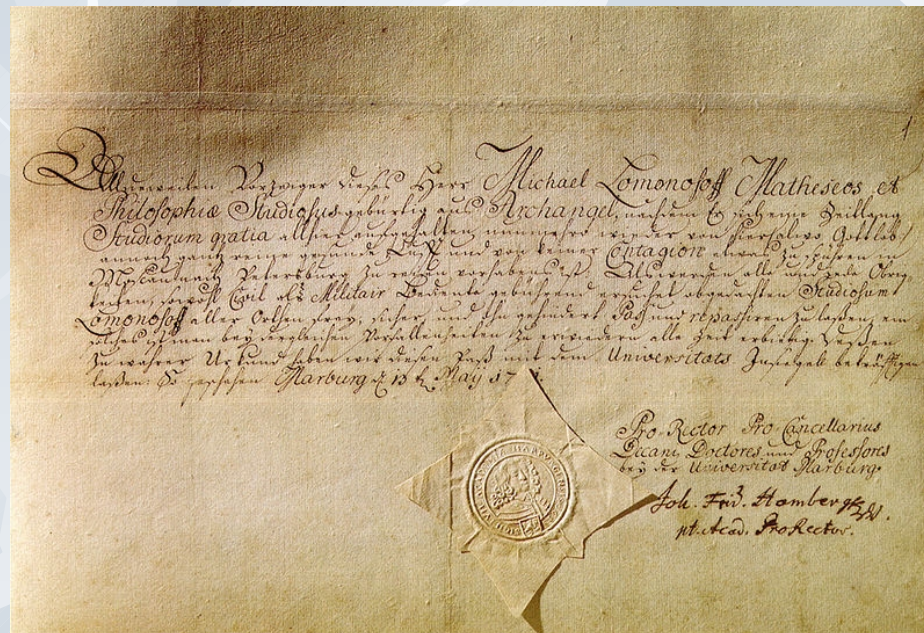 1
Alldieweilen Vorzeiger dieses Herr Michael Lomonosoff Matheseos et
Philosophiæ Studiosus gebürtig aus Archangel, nachdem Er sich eine Zeitlang
Studiorum gratia allhier aufgehalten, nunmehro wieder von hier (alwo Gottlob!
annoch gantz reine gesunde Lufft und von keiner Contagion etwas zu spühren ist)
nach Petersburg zu reisen vorhabens ist; Als werden alle und jede Obrig-
keiten, sowohl Civil als Militair Bediente gebührend ersuchet obgedachten Studiosum
Lomonosoff aller Orthen frey, sicher, und ohngehindert Pass und repassiren zu lassen, ein
solches ist man bey dergleichen Vorfallenheiten zu erwiedern alle Zeit erbietig. Dessen
zu wahrer Urkund haben wir diesen Paß mit dem Universitäts Insiegel bekräfftigen
laßen: So geschehen Marburg d 13 May 17
Pro-Rector Pro-Cancellarius
Decani, Doctores und Professores
bey der Universität Marburg.
Joh. Frid. Homberg
pt. Acad. ProRector.